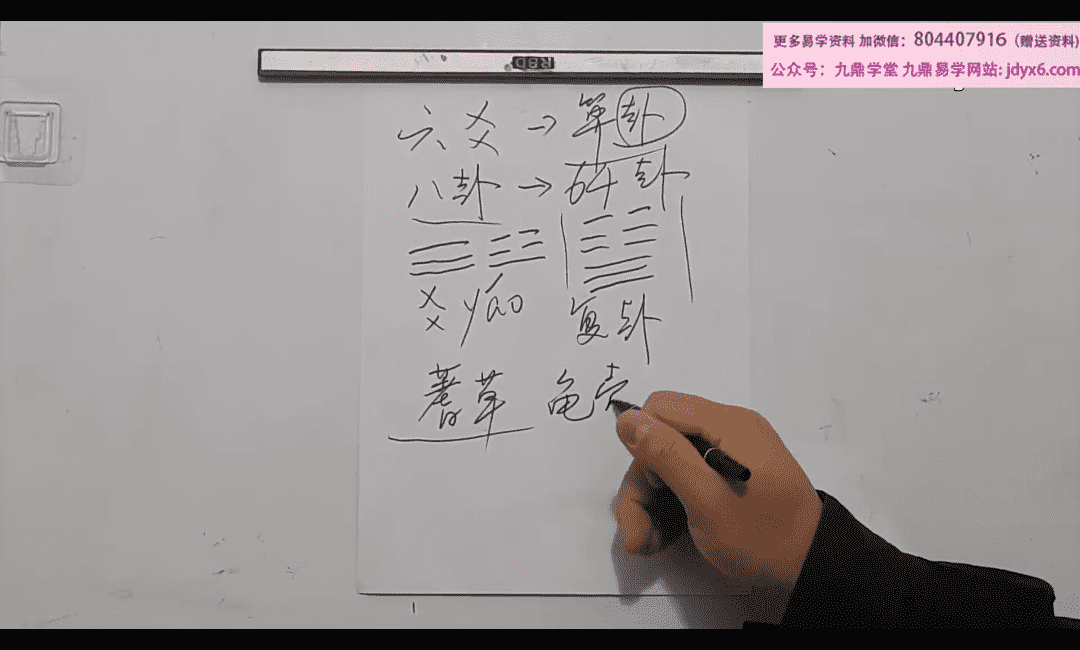 更多易学资料 加微信：804407916（赠送资料）
公众号：九鼎学堂 九鼎易学网站: jdyx6.com
六爻→算卦
八卦→64卦
爻 yáo 复卦
蓍草 龟壳